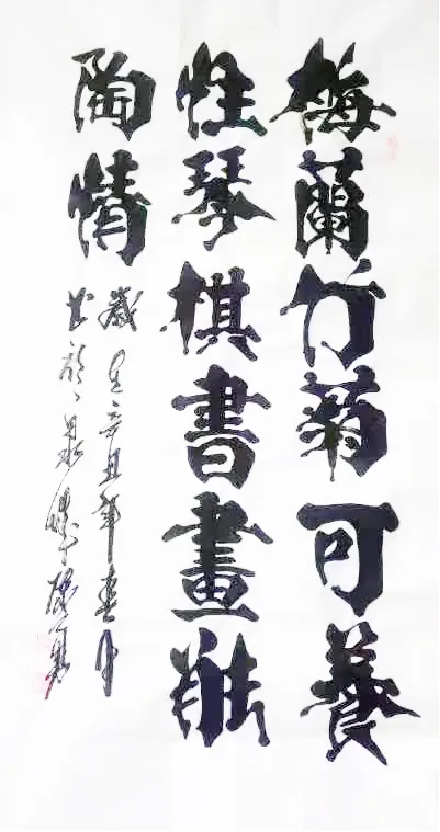 梅蘭竹菊可養
性琴棋書畫能
陶情
歲在辛丑年春月